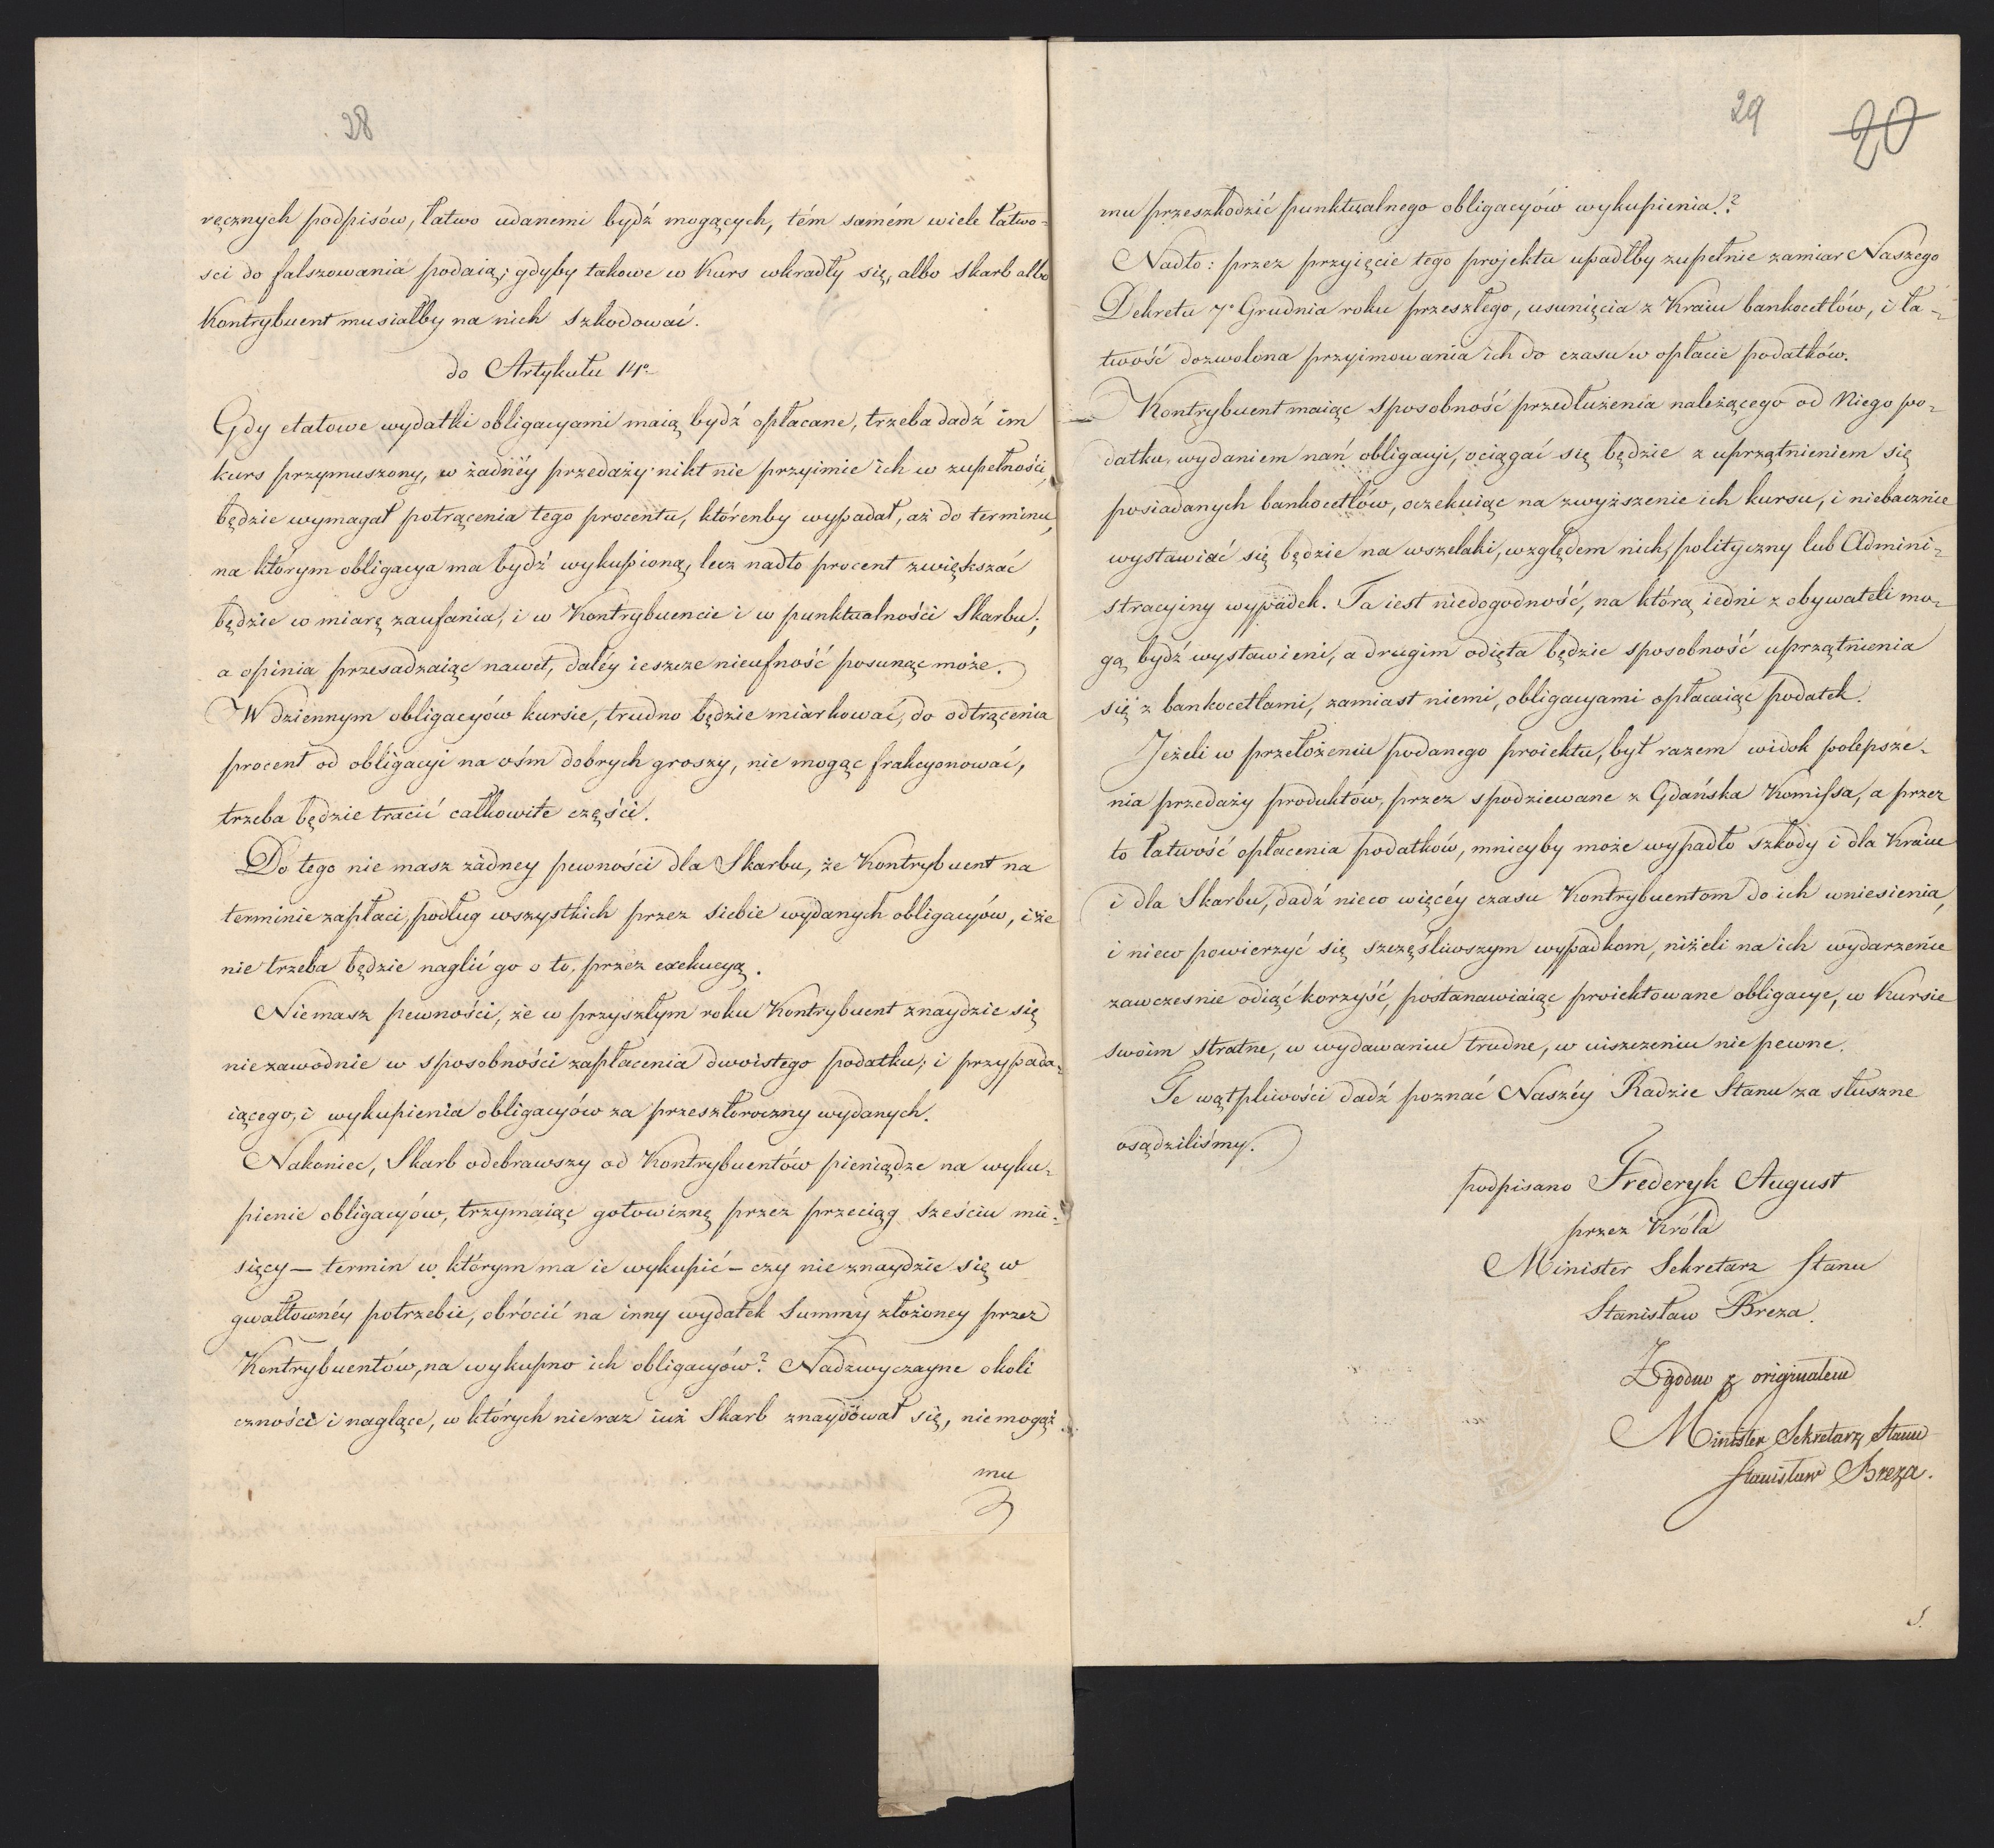 28
ręcznych podpisów, łatwo udanemi bydź mogących, tém samém wiele łatwo-
sci do falszowania podaią; gdyby takowe w Kurs wkradły się, albo Skarb albo
Kontrybuent musiałby na nich szkodować.
do Artykułu 14º
Gdy etatowe wydatki obligacyami maią bydź opłacane, trzeba dadź im
kurs przymuszony, w żadnéy przedaży nikt nie przyimie ich w zupełności,
będzie wymagał potrącenia tego procentu, którenby wypadał, aż do terminu,
na którym obligacya ma bydź wykupioną, lecz nadto procent zwiększać
będzie w miarę zaufania, i w Kontrybuencie i w punktualności Skarbu;
a opinia przesadzaiąc nawet, daléy ieszcze nieufność posunąc może.
W dziennym obligacyów kursie, trudno będzie miarkować, do odtrącenia
procent od obligacyi na ośm dobrych groszy, nie mogąc frakcyonować,
trzeba będzie tracić całkowite części.
Do tego nie masz żadney pewności dla Skarbu, że Kontrybuent na
terminie zapłaci, podług wszystkich przez siebie wydanych obligacyów, i że
nie trzeba będzie naglić go o to, przez exekucyą.
Niemasz pewności, że w przyszłym roku Kontrybuent znaydzie się
niezawodnie w sposobności zapłacenia dwoistego podatku; i przypada-
iącego, i wykupienia obligacyów za przeszłoroczny wydanych.
Nakoniec, Skarb odebrawszy od Kontrybuentów pieniądze na wyku-
pienie obligacyów, trzymaiąc gotowiznę przez przeciąg sześciu mie-
sięcy – termin w którym ma ie wykupić – czy nie znaydzie się w
gwałtownéy potrzebie, obrócić na inny wydatek Summy złożoney przez
Kontrybuentów, na wykupno ich obligacyów? Nadzwyczayne okoli
czności i naglące, w których nieraz iuż Skarb znaydował się, nie mogąż
mu
29
20
mu przeszkodzić punktualnego obligacyów wykupienia??
Nadto: przez przyięcie tego projektu upadłby zupełnie zamiar Naszego
Dekretu 7º Grudnia roku przeszłego, usunięcia z Kraiu bankocetlów, i ła-
twość dozwolona przyimowania ich do czasu w opłacie podatków.
Kontrybuent maiąc sposobność przedłużenia należącego od Niego po-
datku, wydaniem nań obligacyi, ociągać się będzie z uprzątnieniem się
posiadanych bankocetlów, oczekuiąc na zwyższenie ich kursu, i niebacznie
wystawiać się będzie na wszelaki, względem nich, polityczny lub Admini-
stracyiny wypadek. Ta iest niedogodność, na którą iedni z obywateli mo-
gą bydź wystawieni, a drugim odięta będzie sposobność uprzątnienia
się z bankocetlami, zamiast niemi, obligacyami opłacaiąc podatek.
Jeżeli w przełożeniu podanego proiektu, był razem widok polepsze-
nia przedaży produktów, przez spodziewane z Gdańska Komissa, a przez
to łatwość opłacenia podatków, mnieyby może wypadło szkody i dla Kraiu
i dla Skarbu, dadź nieco więcéy czasu Kontrybuentom do ich wniesienia,
i nieco powierzyć się szczęśliwszym wypadkom, niżeli na ich wydarzenie
zawczesnie odiąć korzyść, postanawiaiąc proiektowane obligacye, w kursie
swoim stratne, w wydawaniu trudne, w uiszczeniu nie pewne.
Te wątpliwości dadź poznać Naszéy Radzie Stanu za słuszne
osądziliśmy.
podpisano Frederyk August
przez Króla
Minister Sekretarz Stanu
Stanisław Breza.
Zgodno z originałem
Minister Sekretarz Stanu
Stanisław Breza.